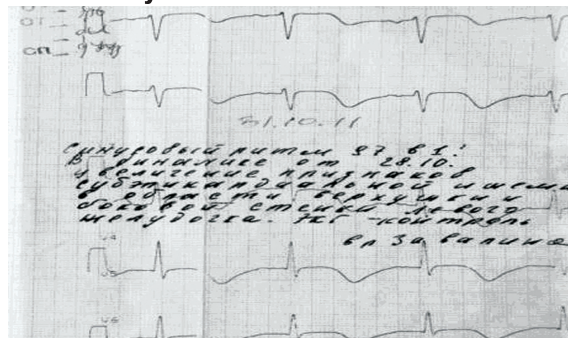 31.10.11
синусовый ритм 97 в 1'
В динамике от 28.10.
увеличение признаков
субэпикардиальной ишеми
в области верхушки и
боковой стенки левого
желудочка. ЭКГ-контроль
вр Завалина